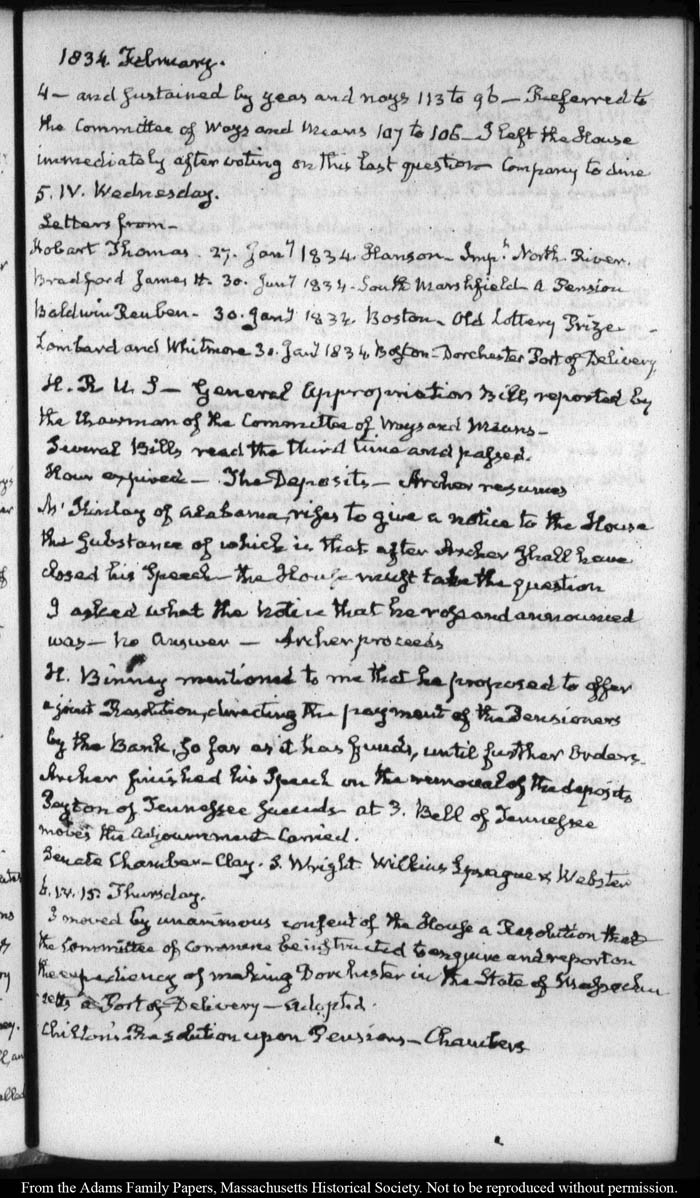 1834. February.
4 — and sustained by yeas and nays 113 to 96 — Referred to
the Committee of Ways and Means 107 to 106 — I left the House
immediately after voting on this last question — Company to dine
5. IV. Wednesday.
Letters from —
Hobart Thomas. 27. Jany 1834. Hanson — Impt North River.
Bradford James H. 30. Jany 1834. South Marshfield a Pension
Baldwin Reuben — 30. Jany 1834. Boston — Old Lottery Prize —
Lombard and Whitmore 30. Jany 1834. Boston — Dorchester Port of Delivery
H. R U. S — General Appropriation Bill, reported by
the Chairman of the Committee of Ways and Means —
Several Bills read the third time and passed.
Hour expired — The Deposits — Archer resumes
McKinlay of Alabama, rises to give a notice to the House
the substance of which is that after Archer shall have
closed his Speech — the House must take the question
I asked what the notice that he rose and announced
was — no answer — Archer proceeds
H. Binney mentioned to me that he proposed to offer
a joint Resolution, directing the payment of the Pensioners
by the Bank, so far as it has funds, until further Orders.
Archer finished his Speech on the removal of the deposits
Peyton of Tennessee succeeds at 3. Bell of Tennessee
moves the adjournment — Carried.
Senate Chamber — Clay. S. Wright Wilkins Sprague & Webster
6. IV. 15. Thursday.
I moved by unanimous consent of the House a Resolution that
the Committee of Commerce be instructed to enquire and report on
the expediency of making Dorchester in the State of Massachu
setts a Port of Delivery — adopted.
Chilton's Resolution upon Pensions — Chambers
From the Adams Family Papers, Massachusetts Historical Society. Not to be reproduced without permission.